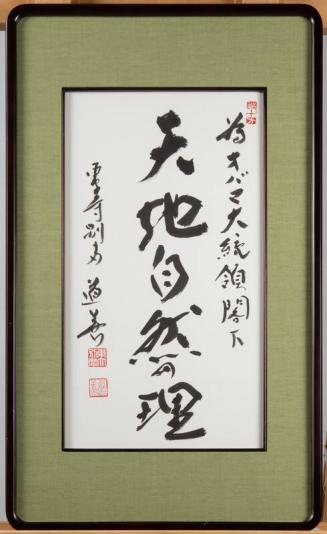 為オバマ大統領閣下
天地自然理
東大寺別當 道善